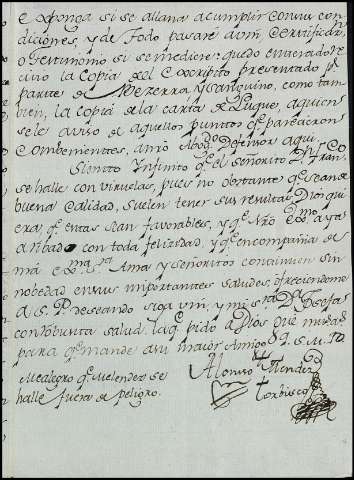 exponga si se allana a cumplir con sus con
diciones, y de todo pasare a Vm Certificazn
o Testimonio si se me diere: quedo enterado
civio la Copia del Escripto presentado pr
parte de Mezerra y Sanguino, como tam
bien, la copia de la carta Duque, a quien
se le aviso de aquellos puntos qe parecieron
combenientes, a mi Abogdo Detimor aqui.
Siento Infinito qe el Señorito Dn Franco
se halle con viruelas, pues no obstante qe sean de
buena calidad, suelen tener sus resultas, Dios qui
era qe estas sean favorables, y qe Nro Exmo aya
arribado con toda felicidad, y qe en compañia de
mi Exma Sra Ama y Señoritos continuen sin
nobedad en sus importantes saludes, ofreciendome
a S. P. deseando siga Vm, y mi Sra Da Josefa
con robusta salud, la qe pido a Dios gue mu as
para qe mande a su maior Amigo Q. S. M. B.
Alonso Mendez
Tordisco
Me alegro qe Melendez se
halle fuera de peligro.